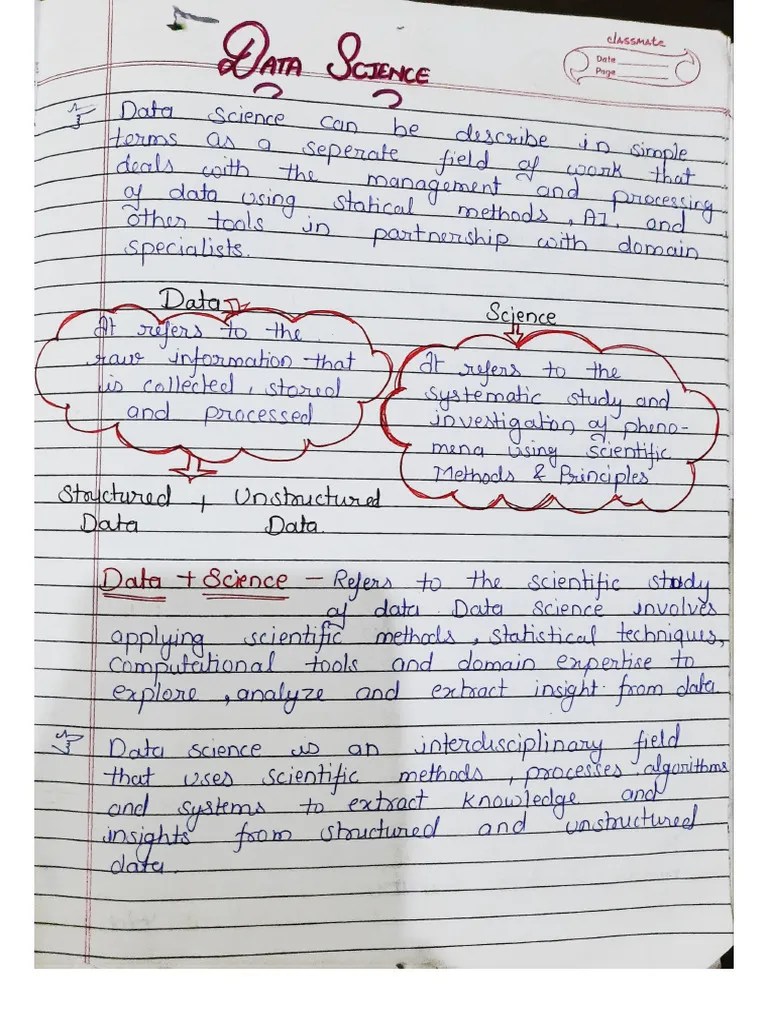 classmate
Date
Page
DATA SCIENCE
Data science can be describe in simple
terms as a seperate field of work that
deals with the management and processing
of data using statical methods, AI, and
other tools in partnership with domain
specialists.
Data
It refers to the
raw information that
is collected, stored
and processed
Science
It refers to the
systematic study and
investigation of pheno-
mena using scientific
Methods & Principles
Structured , Unstructured
Data Data
Data + Science - Refers to the scientific study
of data Data science involves
applying scientific methods, statistical techniques,
computational tools and domain expertise to
explore, analyze and extract insight from data
Data science is an interdisciplinary field
that uses scientific methods, processes algorithms
and systems to extract knowledge and
insights from structured and unstructured
data.